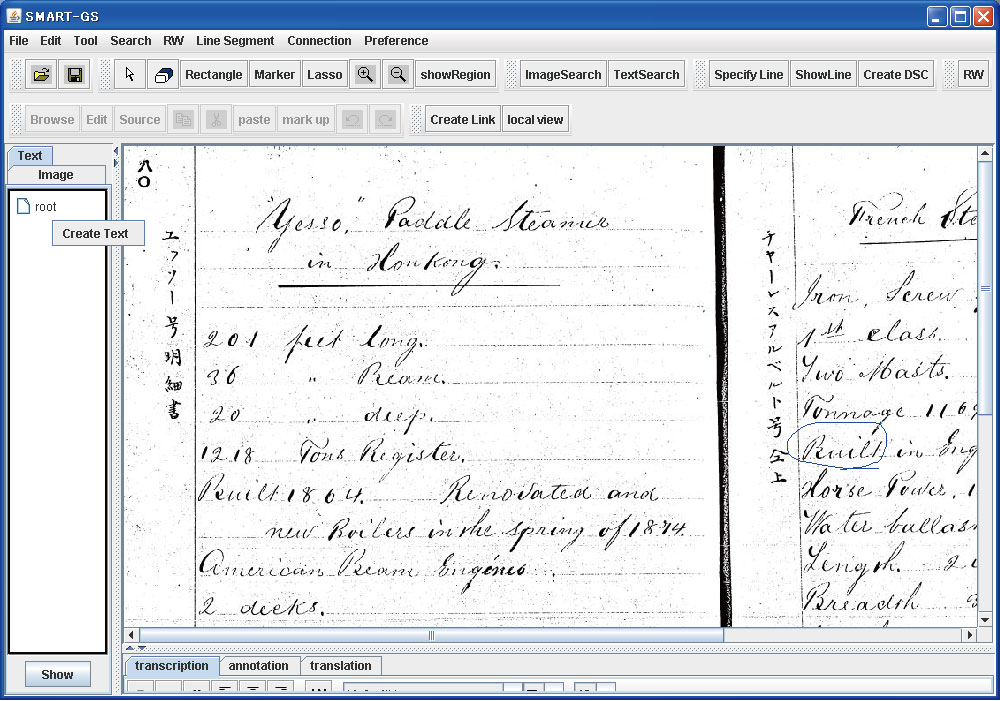 SMART-GS
File Edit Tool Search RW Line Segment Connection Preference
Rectangle Marker Lasso showRegion ImageSearch TextSearch Specify Line ShowLine Create DSC RW
Browse Edit Source paste mark up Create Link local view
Text
Image
root
Create Text
Show
八〇
エツソー号明細書
"Yesso," Paddle Steamer
in Honkong.
201 feet long.
36 " Beam.
20 " deep.
1218 Tons Register.
Built 1864. Renovated and
new Boilers in the spring of 1874.
American Beam Engines.
2 decks.
チャーレスアルベルト号仝上
French Ste
Iron, Screw
1st class.
Two Masts.
Tonnage 116
Built in Eng
Horse Power, 1
Water ballas
Length. 2
Breadth
transcription annotation translation